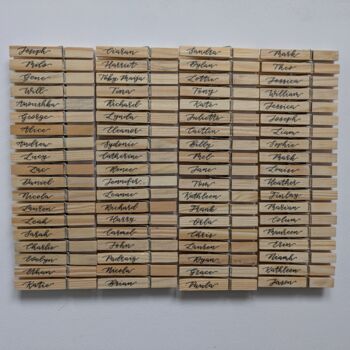 Joseph Ciaran Sandra Mark
Harriet Dylan Theo
Gene Toby, Maya Lottie Jessica
Will Tina Tony William
Anoushka Richard Kate Jessica
George Lynda Juliette Joseph
Alice Eleanor Caitlin Liam
Andrew Sydonie Billy Sophie
Lucy Catherine Mel Mark
Renee Jane Louise
Daniel Jennifer Tom Heather
Nicola Leanne Kathleen Finlay
Lauren Richard Frank Marian
Leah Harry Orla Colum
Sarah Carmel Chris Maureen
Charlie John Lauren Erin
Evelyn Padraig Ryan Niamh
Ethan Nicola Grace Kathleen
Katie Brian Paula Jason